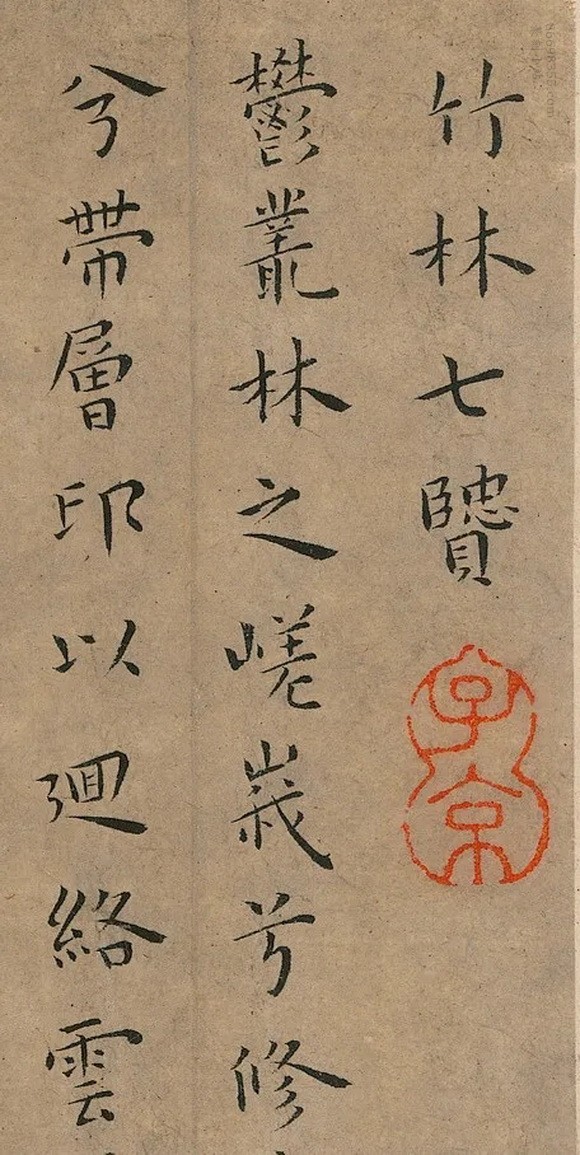 竹林七贒
子京
鬱叢林之嵯峩兮修
兮帶層以廻絡雲